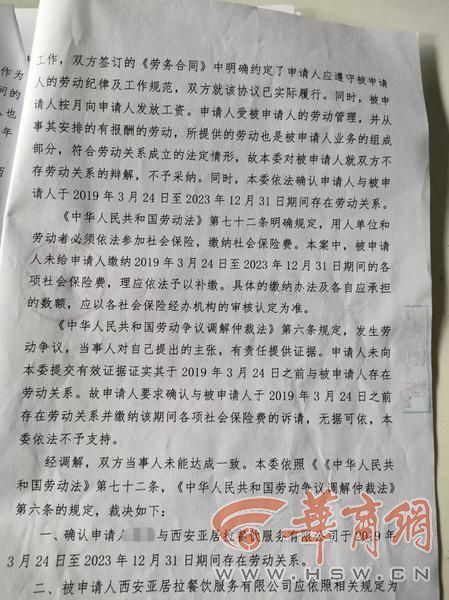 工作，双方签订的《劳务合同》中明确约定了申请人应遵守被申请
人的劳动纪律及工作规范，双方就该协议已实际履行。同时，被申
请人按月向申请人发放工资。申请人受被申请人的劳动管理，并从
事其安排的有报酬的劳动，所提供的劳动也是被申请人业务的组成
部分，符合劳动关系成立的法定情形，故本委对被申请人就双方不
存在劳动关系的辩解，不予采纳。同时，本委依法确认申请人与被申
请人于2019年3月24日至2023年12月31日期间存在劳动关系。
《中华人民共和国劳动法》第七十二条明确规定，用人单位和
劳动者必须依法参加社会保险，缴纳社会保险费。本案中，被申请
人未给申请人缴纳2019年3月24日至2023年12月31日期间的各
项社会保险费，理应依法予以补缴。具体的缴纳办法及各自应承担
的数额，应以各社会保险经办机构的审核认定为准。
《中华人民共和国劳动争议调解仲裁法》第六条规定，发生劳
动争议，当事人对自己提出的主张，有责任提供证据。申请人未向
本委提交有效证据证实其于2019年3月24日之前与被申请人存在
劳动关系。故申请人要求确认与被申请人于2019年3月24日之前
存在劳动关系并缴纳该期间各项社会保险费的诉请，无据可依，本
委依法不予支持。
经调解，双方当事人未能达成一致。本委依照《《中华人民共
和国劳动法》第七十二条，《中华人民共和国劳动争议调解仲裁法》
第六条的规定，裁决如下：
一、确认申请人 与西安亚居拉餐饮服务有限公司于2019年
3月24日至2023年12月31日期间存在劳动关系。
二、被申请人西安亚居拉餐饮服务有限公司应依照相关规定为
作为
间的
人也
年
西
华商网
HSW.CN